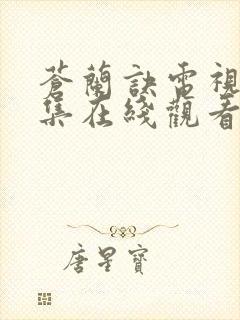 蒼蘭訣電視
集在綫觀看
唐星寶